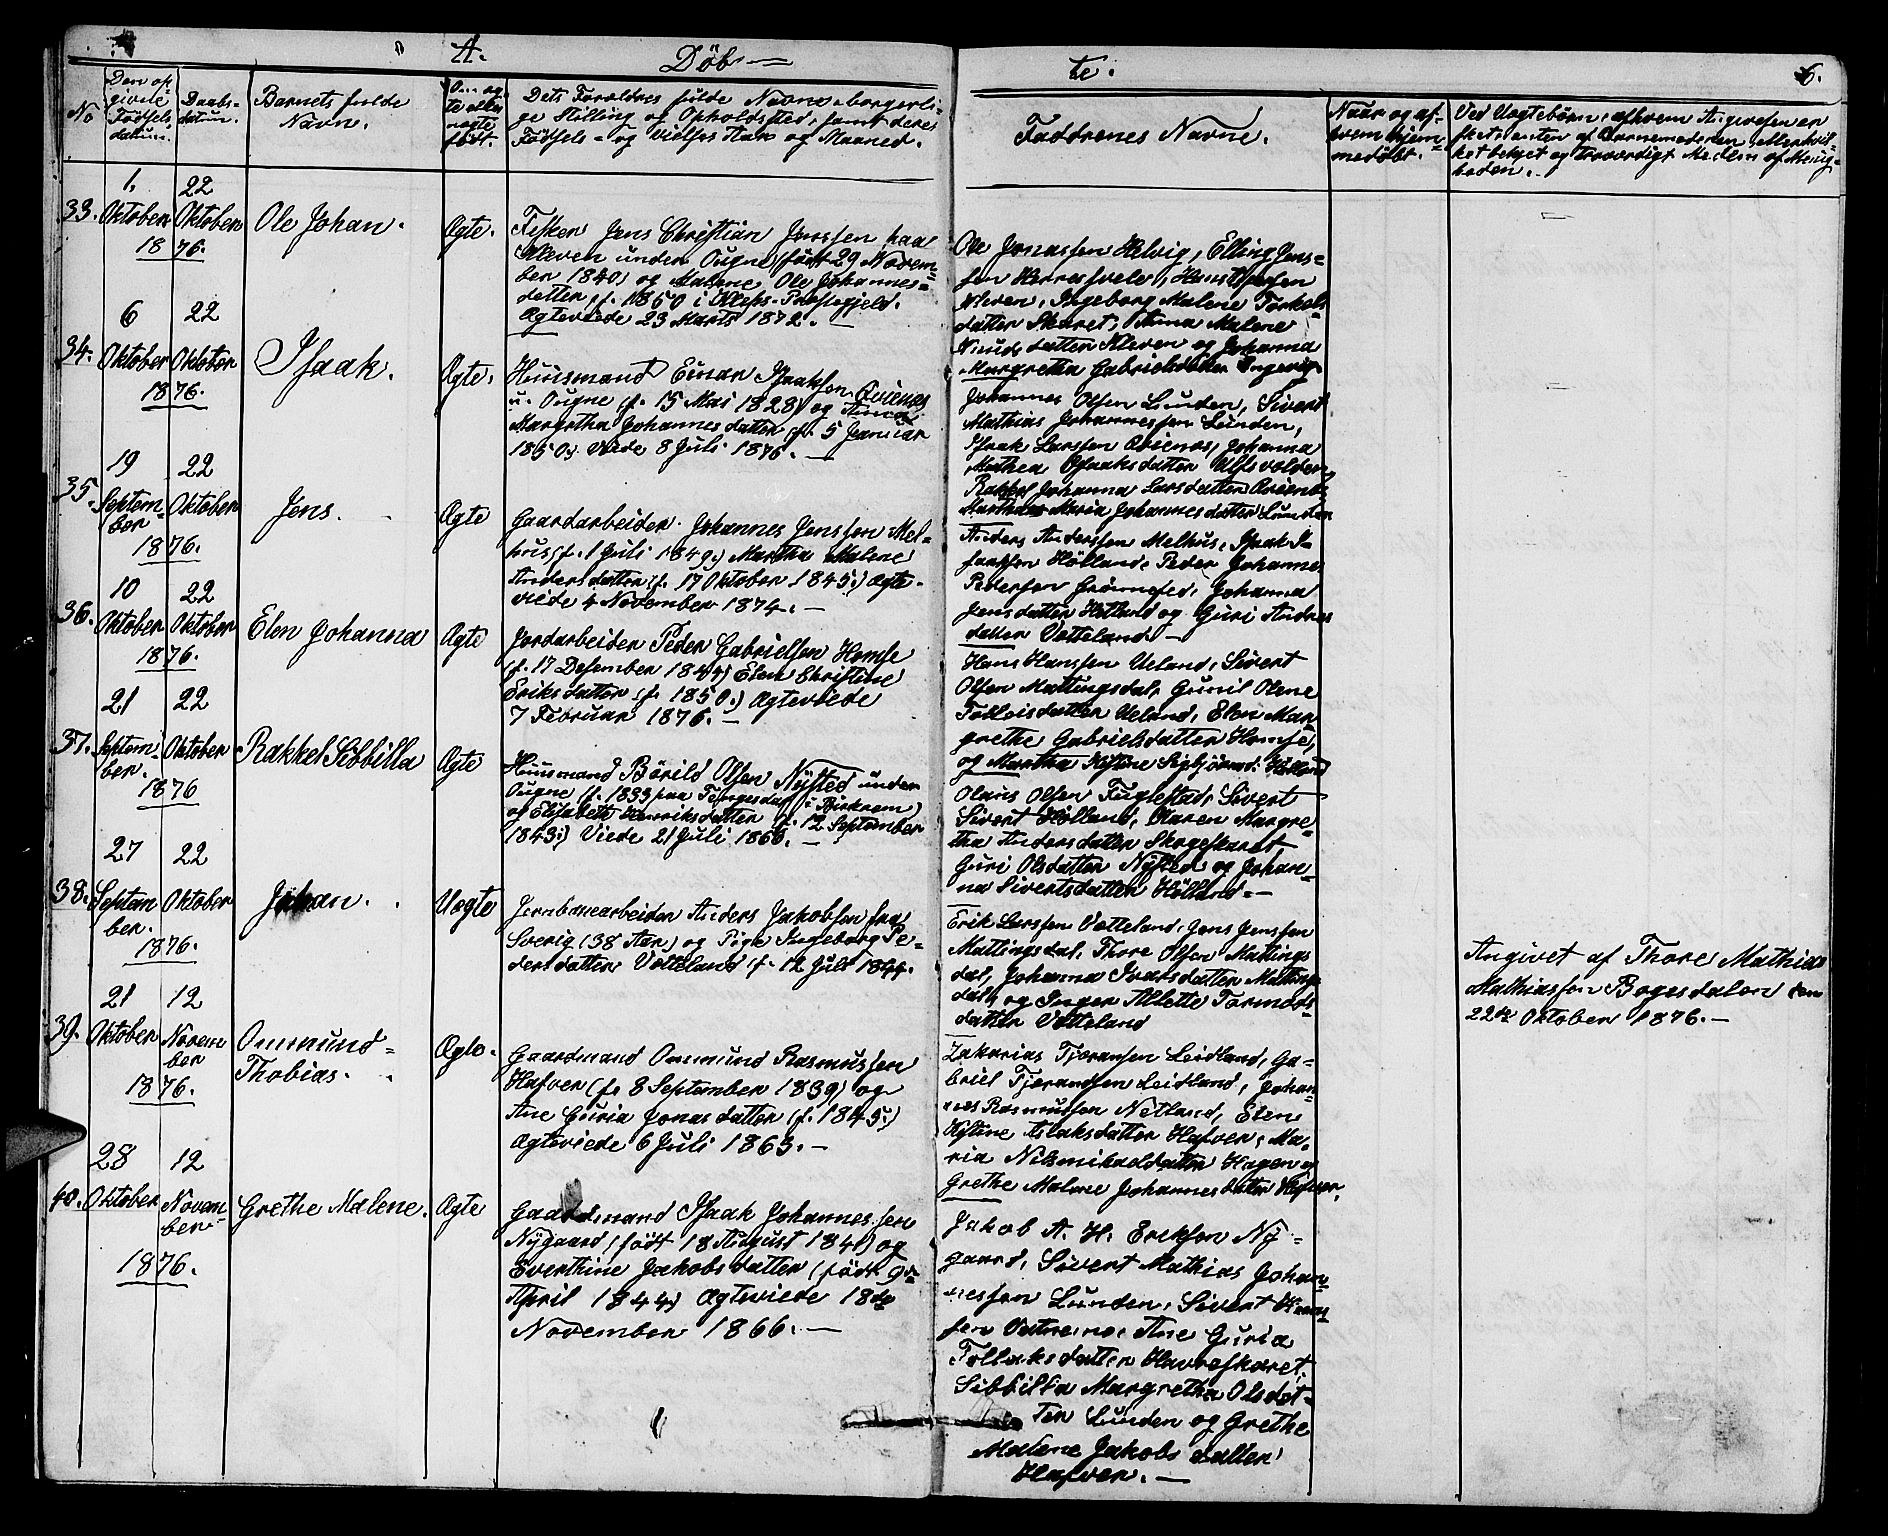 A. Döb— te. 6.
No
Den op-
givne
Födsels-
datum.
Daabs-
datum.
Barnets fulde
Navn.
Om æg-
te eller
uægte
födt.
Dets Forældres fulde Navne, borgerli-
ge Stilling og Opholdsted, samt deres
Födsels- og Vielses Aar og Maaned.
Faddrenes Navne.
Naar og af
hvem hjem-
medöbt.
Ved Uægtebörn, af hvem Angivelsen er
skeet, enten af Barnemoderen, eller hvil-
ket betyet og troværdigt Medlem af Menig-
heden.
33.
1.
Oktober
1876.
22
Oktober
Ole Johan.
Ægte.
Fisker Jens Christian Jenssen paa
Kleven under Ougne (född 29 Novem-
ber 1840) og Malene Ole Johannes-
datter, f. 1850 i Kleps Præstegjeld.
Ægteviede 23 Marts 1872. —
Ole Jonassen Helvig, Elling Jens-
sen Herresvele, Hans
Kleven, Ingeborg Malene Torkels-
datter Skaret, Anna Malene
datter Kleven og Johanna
Margretha Gabrielsdatter
34.
6
Oktober
1876.
22
Oktober
Isaak.
Ægte.
Huusmand Einar Isaaksen Qvienes
u. Ougne (f. 15 Mai 1828) og Anna
Margretha Johannesdatter (f. 5 Januar
1850). Viede 8 Juli 1876. —
Johannes Olsen Lunden, Sivert
Mathias Johannessen Lunden,
Isaak Larssen Qvienes, Johanna
Mathea Isaaksdatter Ulfsvolden,
Rakkel Johanna Larsdatter Qvienes
Martha Maria Johannesdatter Lunden
35.
19
Septem-
ber
1876.
22
Oktober
Jens.
Ægte
Gaardarbeider Johannes Jenssen Mel-
hus (f. 1 Juli 1849.) Martha Malene
Andersdatter (f. 17 Oktober 1845.) Ægte-
viede 4 November 1874. —
Anders Anderssen Melhus, Isaak I-
saaksen Hölland, Peder Johannes
Pederssen Johanna
Jensdatter Hetland og Guri Anders
datter Vetteland —
36.
10
Oktober
1876.
22
Oktober
Elen Johanna
Ægte
Jordarbeider Peder Gabrielsen Homse
(f. 17 Desember 1844) Elen Christine
Eriksdatter (f. 1850.) Ægteviede
7 Februar 1876. —
Hans Hanssen Ueland, Sivert
Olsen Mattingsdal, Gunil Olene
Tolleisdatter Ueland, Elen Mar-
grethe Gabrielsdatter Homse,
og Martha Kistine Sigbjörnsd. Hölland
37.
21
Septem-
ber.
1876
22
Oktober
Rakkel Sibbilla
Ægte
Huusmand Börild Olsen Nysted under
Ougne (f. 1833 paa Tengesdal i Birkrem)
og Elisabeth Henriksdatter (f. 12 September
1843.) Viede 21 Juli 1866. —
Olaus Olsen Fuglestad, Sivert
Sivert Hölland, Karen Margre-
tha Andersdatter Skogeskaret,
Guri Olsdatter Nysted og Johan-
na Sivertsdatter Hölland. —
38.
27
Septem
ber.
1876.
22
Oktober
Johan.
Uægte
Jernbanearbeider Anders Jakobsen fra
Sverig (38 Aar) og Pige Ingeborg Pe-
dersdatter Vetteland (f. 12 Juli 1844.
Erik Larssen Vetteland, Jens Jenssen
Mattingsdal, Thore Olsen Mattings
dal, Johanna Ivarsdatter Mattings
dal, og Inger Allette Tormods-
datter Vetteland
Angivet af Thore Mathias
Mathiassen Bogesdalen den
22de Oktober 1876. —
39.
21
Oktober
1876.
12
Novem
ber
Ommund-
Thobias.
Ægte.
Gaardmand Ommund Rasmussen
Hafver (f. 8 September 1839) og
Ane Guria Jonasdatter (f. 1845.)
Ægteviede 6 Juli 1863. —
Zakarias Tjöransen Leidland, Ga-
briel Tjörandsen Leidland, Johan-
nes Rasmussen Netland, Elen
Kistine Aslaksdatter Hafver, Ma-
ria Nilsmikaeldatter Hagen og
Grethe Malene Johannesdatter Hafver.
40.
28
Oktober
1876.
12
Novem-
ber
Grethe Malene.
Ægte
Gaardmand Isaak Johannessen
Nygaard, (födt 18 August 1841) og
Everthine Jakobsdatter (född 9de
April 1844) Ægteviede 18de
November 1866. —
Jakob A. H. Eriksen Ny-
gaard, Sivert Mathias Johan-
nessen Lunden, Sivert Hans
sen Ane Guria
Tollaksdatter Havreskaret,
Sibbilla Margretha Olsdat-
ter Lunden og Grethe
Malene Jakobsdatter
Hafver. —